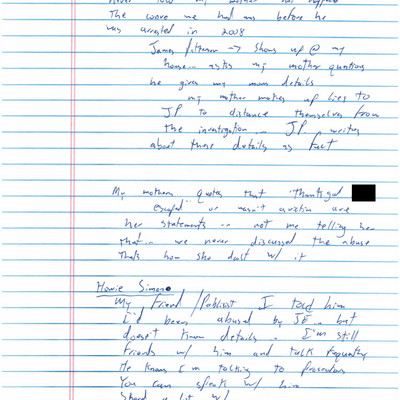 my mother
The before he
was arrested in 2008
James → Shows up @ my
home.. asks my mother questions
he gives my mom details
my mother makes up lies to
JP to distance themselves from
the investigation... JP writes
about those details as fact
My mothers quotes that "thankgod
escaped" or wasn't a victim are
her statements .. not me telling her
that.. we never discussed the abuse
Thats how she dealt w/ it
Howie Simon
My friend / Publicist I told him
I'd been abused by JE.. but
doesn't know details.. I'm still
friends w/ him and talk frequently
He knows I'm talking to prosecutors
You can speak w/ him
Shared a lot w/